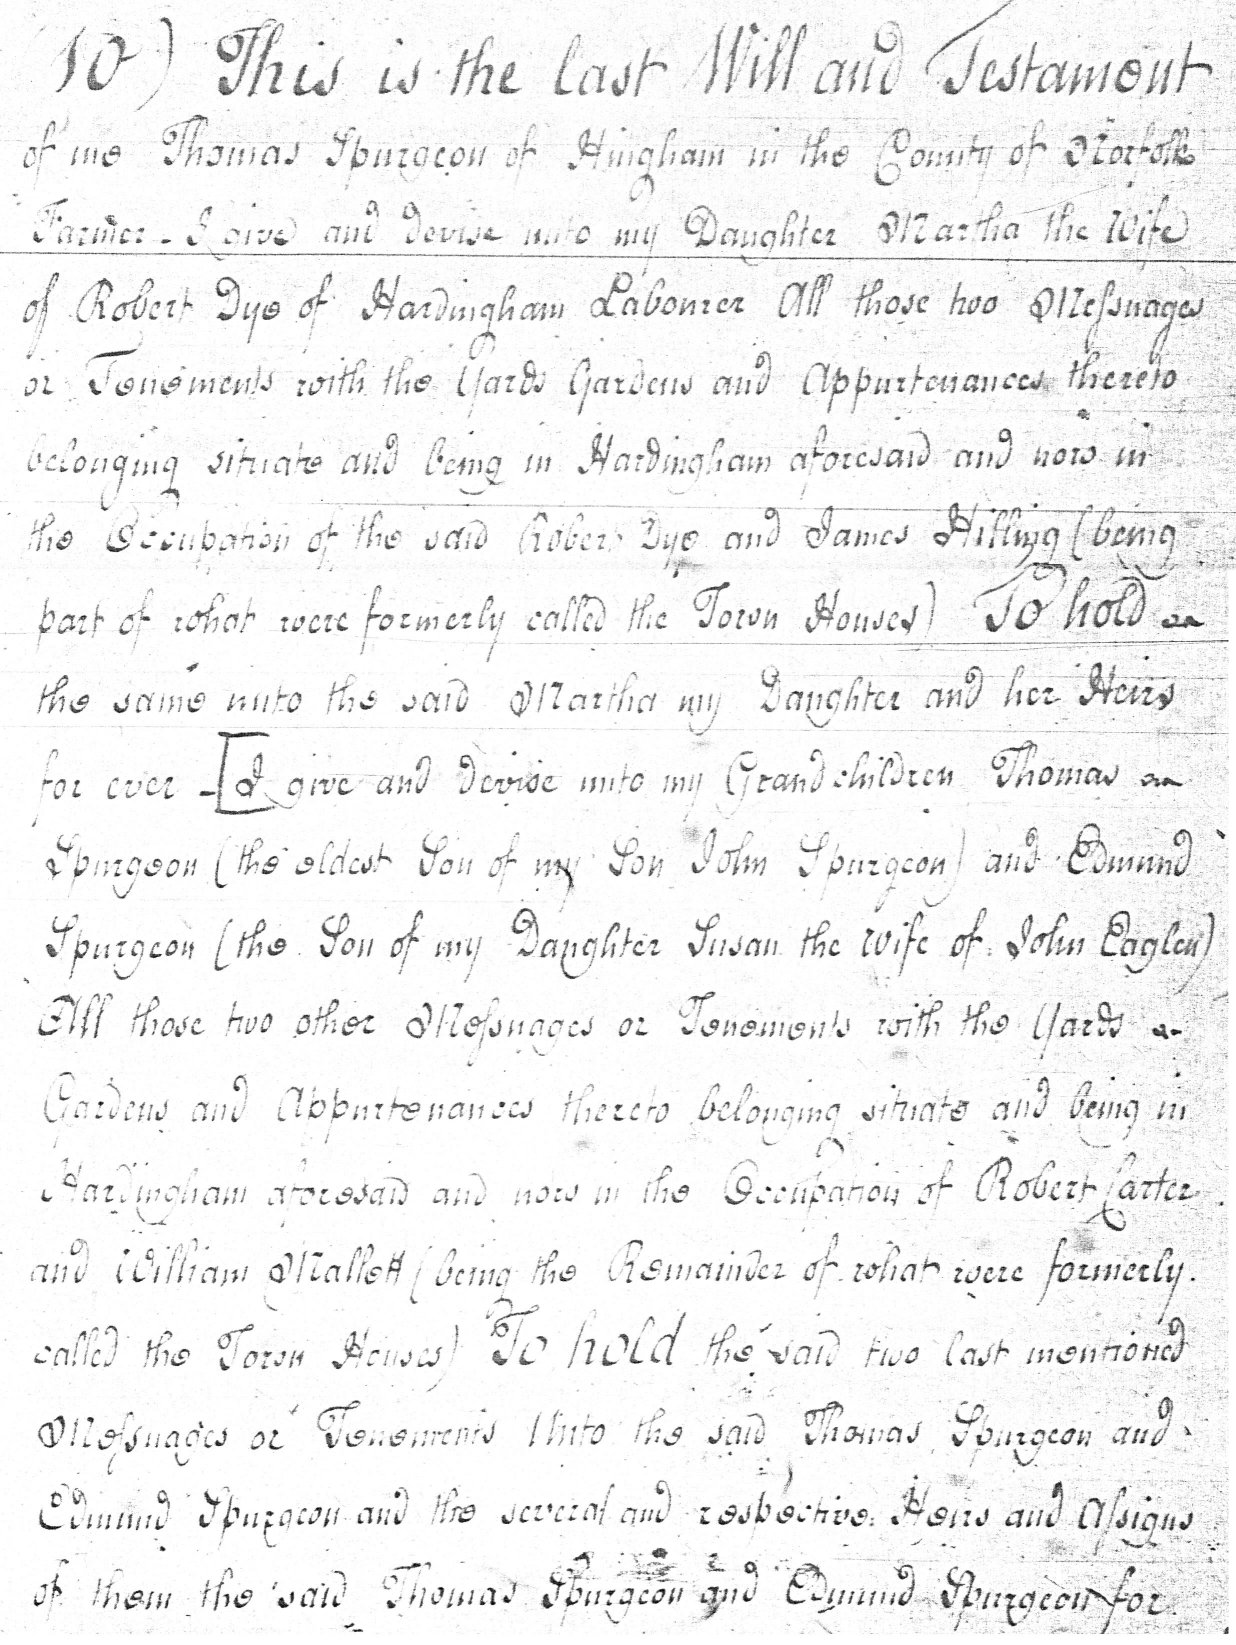 10) This is the last Will and Testament
of me Thomas Spurgeon of Hingham in the County of Norfolk
Farmer - I give and devise unto my Daughter Martha the Wife
of Robert Dye of Hardingham Labourer All those two Meſsuages
or Tenements with the Yards Gardens and Appurtenances thereto
belonging situate and being in Hardingham aforesaid and now in
the Occupation of the said Robert Dye and James Hilling (being
part of what were formerly called the Town Houses) To hold
the same unto the said Martha my Daughter and her Heirs
for ever - [I give and devise unto my Grandchildren Thomas
Spurgeon (the eldest Son of my Son John Spurgeon) and Edmund
Spurgeon (the Son of my Daughter Susan the Wife of John Eaglen)
All those two other Meſsuages or Tenements with the Yards
Gardens and Appurtenances thereto belonging situate and being in
Hardingham aforesaid and now in the Occupation of Robert Carter
and William Mallett (being the Remainder of what were formerly
called the Town Houses) To hold the said two last mentioned
Meſsuages or Tenements Unto the said Thomas Spurgeon and
Edmund Spurgeon and the several and respective Heirs and Aſsigns
of them the said Thomas Spurgeon and Edmund Spurgeon for